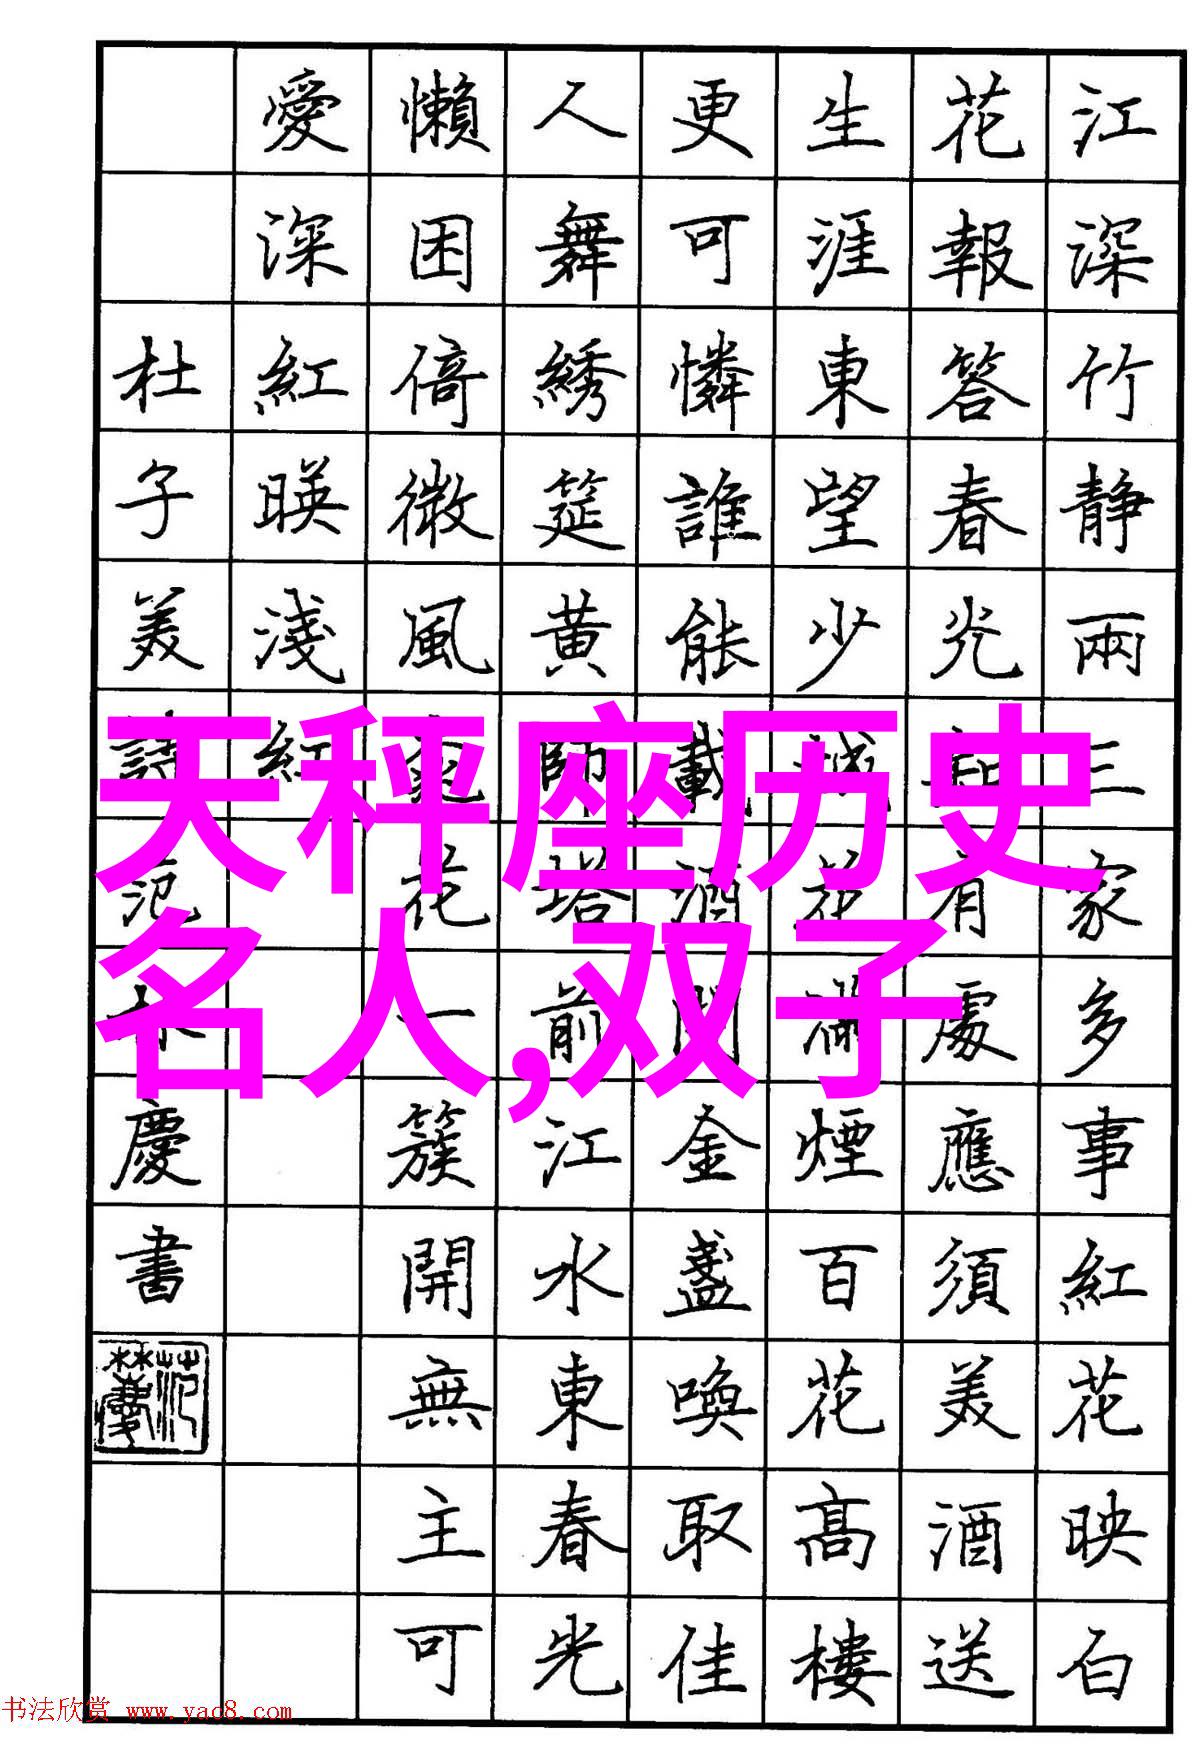 江深竹静兩三家多事紅花映白
花報答春光知有處應須美酒送
生涯東望少城花滿煙百花高樓
更可憐誰能載酒開金盞喚取佳
人舞綉筵黄師塔前江水東春光
懶困倚微風花一簇開無主可
愛深紅暎淺紅
杜子美詩范林慶書
天秤座历史
名人,双子
书法欣赏 www.yac8.com